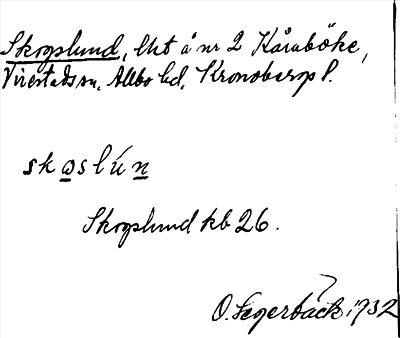 Skogslund, lht å nr 2 Kåraböke,
Virestads sn, Allbo hd, Kronobergs l.
skoslún
Skogslund kb 26.
O. Segerbäck 1932